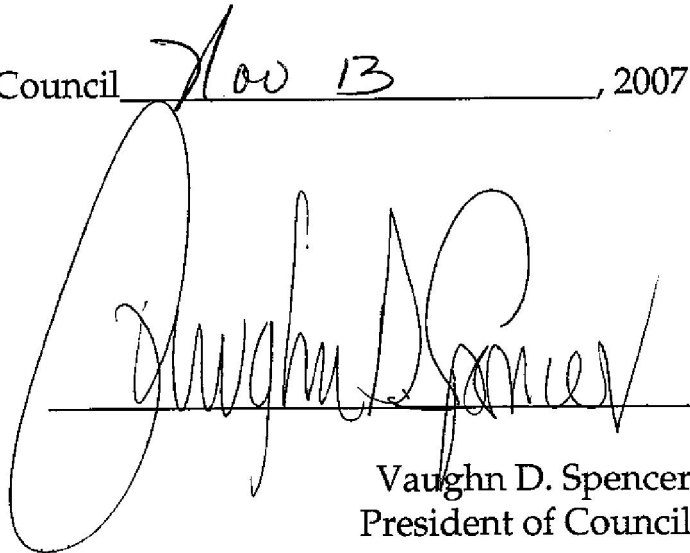 Council Nov 13, 2007
Vaughn D Spencer
Vaughn D. Spencer
President of Council